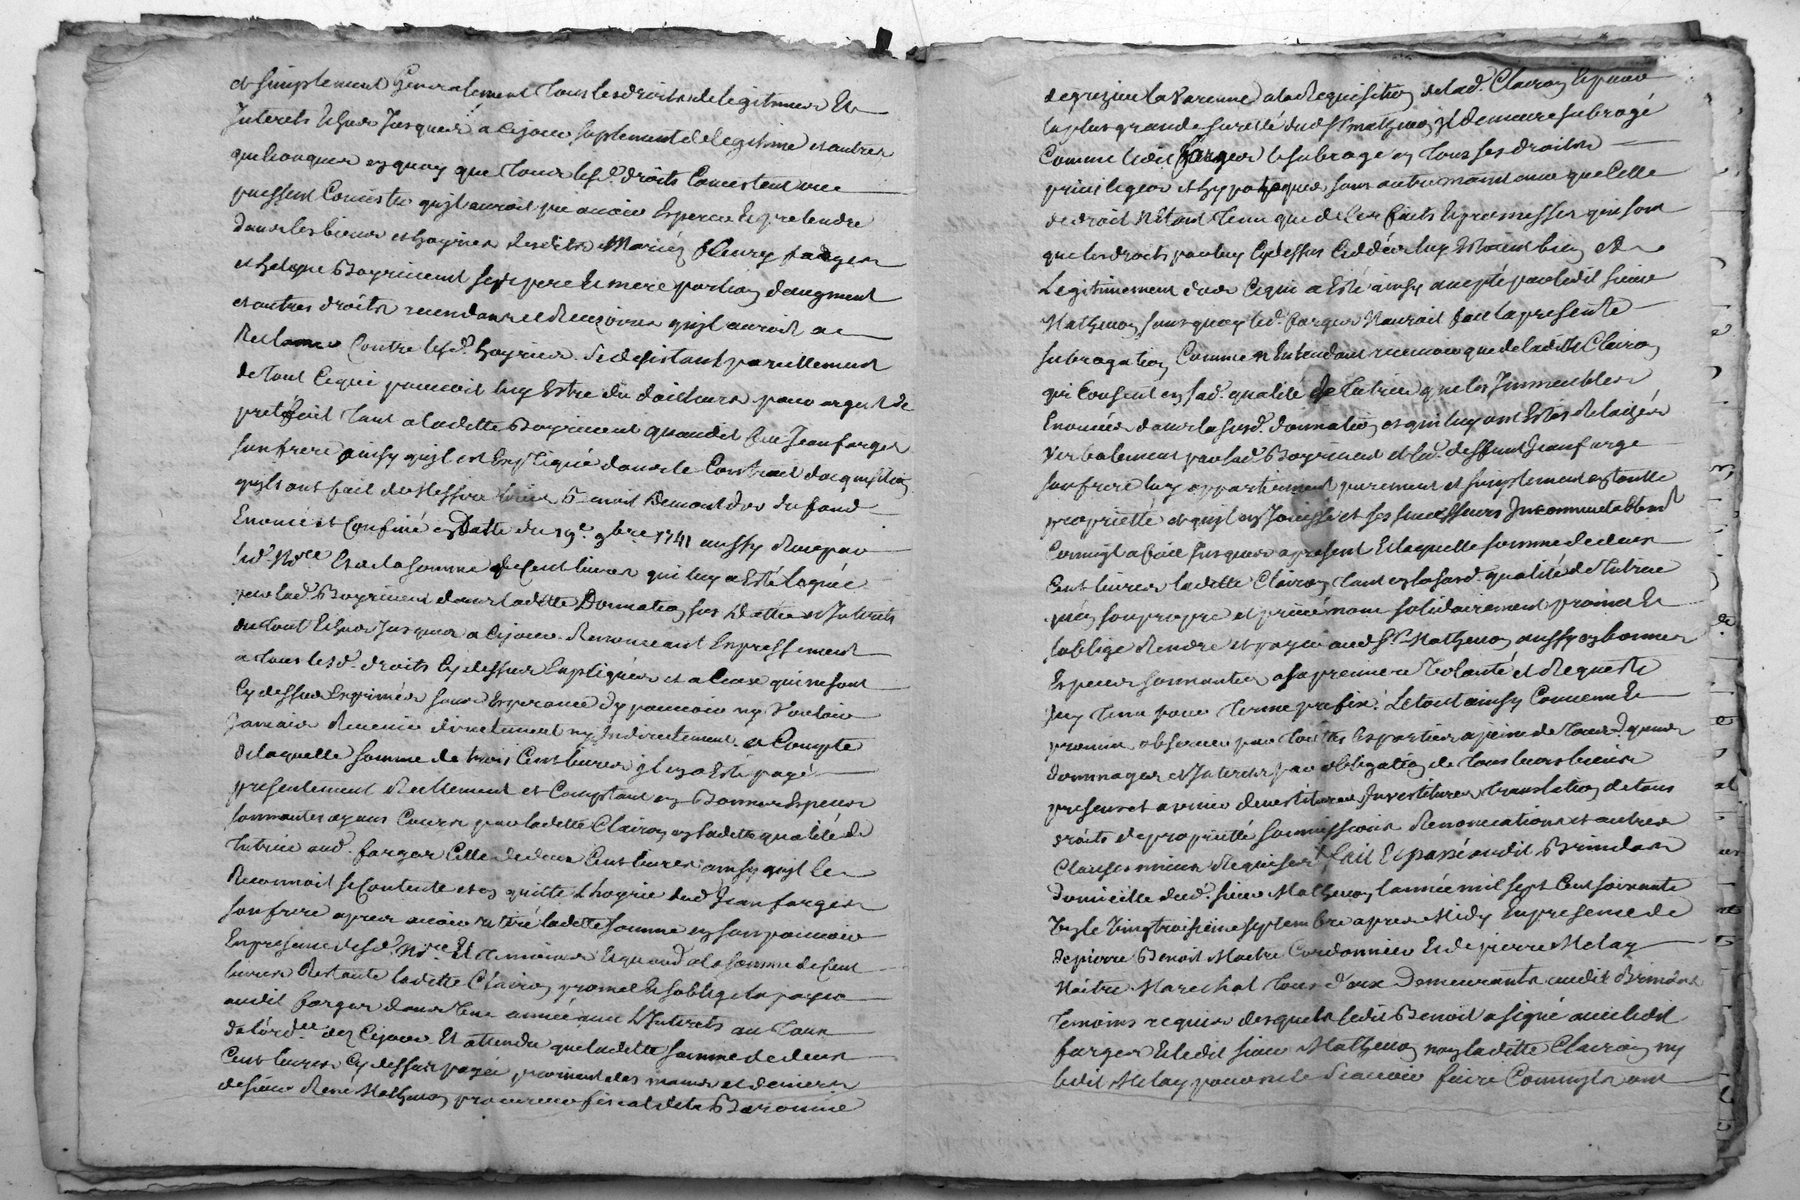 et simplement Generalement tous les droits de legitimes Et
Interets Echus Jusques a Cejour suplement de legitime et autres
quelconques en quoy que tous lesd. droits Concistent ou
puissent Concister quil auroit pu avoir Esperer Et pretendre
dans les biens et hoyries desdits Mariés fleury farges
et Bayrimend ses pere Et mere portion daugment
et autres droits quil auroit a
Reclamer Contre lesd. hoyries se desistant pareillement
de tout Cequi pouvoit luy Estre du dailleurs pour argent de
prest fait tant a ladette Bayrimend quaudit feu Jean farges
son frere ainsy quil est Expliqué dans le Contract dacquisition
quils ont fait de Messire du fond
Enoncé et Confiné en Datte du 19e. 9bre. 1741 aussy Reçu par
led. Nore. Et de la somme de Cent livres qui luy a Esté leguée
par lad. Bayrimend dans ladette Donnation sus Dattée et Interets
du tout Echus Jusques a Cejour Renonceant Expressement
a tous lesd. droits Cy dessus Expliqués et a Ceux qui ne sont
Cy dessus Exprimés sans Esperance dy pouvoir ny Vouloir
Jamais Revenir directement ny Indirectement a Compte
delaquelle somme de trois Cent livres il en a Esté payé
presentement Reellement et Comptant en Bonnes Especes
sonnantes ayant Cours par ladette Clairon en ladette qualité de
tutrice aud. farges Celle de deux Cent livres ainsy quil le
Reconnoit se Contente et en quitte Lhoyrie dud. Jean farges
son frere apres avoir Retiré ladette somme en son pouvoir
En presence desd. Nore. Et temoins Et quand a la somme de Cent
livres Restante ladette Clairon promet Et soblige la payer
audit farges dans Une année avec LInterets au taux
de lordce. dez Cejour Et attendu que ladette somme de deux
Cent livres Cy dessus payée provient des mains et deniers
de sieur René Mathevon procureur fiscal de la Baronnie
de grezieu la Varenne a la Requisition de lad. Clairon Et pour
la plus grande sureté dud. Sr. Mathevon il demeure subrogé
Comme ledit farges le subroge en tous ses droits
privileges et hypoteques sans autre maintenue que Celle
de droit Netant tenu que de ses faits Et promesses qui sont
que les droits par luy Cydessus Ceddés luy Etoient bien et
Legitimement dus Cequi a Esté ainsy accepté par ledit sieur
Mathevon sans quoy led. farges Nauroit fait la presente
subrogation Comme Nentendant que de ladette Clairon
qui Consent en sad. qualité de tutrice que les Immeubles
Enoncés dans la susd. donnation et qui luy ont Estés Relachés
Verbalement par lad. Bayrimend et led. deffunt Jean farge
son frere luy appartiennent purement et simplement en toutte
proprietté et quil en Jouisse et ses successeurs Incommutablemt.
Comme il a fait Jusques apresent Et laquelle somme de deux
Cent livres ladette Clairon tant en la susd. qualité de tutrice
quen son propre et privé nom solidairement promet Et
soblige Rendre et payer aud. Sr. Mathevon aussy en bonnes
Especes sonnantes a sa premiere Volonté et Requeste
Icy tenu pour terme prefix. Le tout ainsy Convenu Et
promis observer par touttes Es parties a peine de tous depens
dommages et Interets par obligation de tous leurs biens
presents et avenir devestitures Investitures translation de tous
droits de proprietté soumissions Renonciations et autres
Clauses mieux Requises fait Et passé audit Brindas
domicille dud. sieur Mathevon lannée mil sept Cent soixante
Et le Vingtroisieme septembre apres Midy En presence de
de pierre Benoit Maitre Cordonnier Et de pierre Melay
Maitre Marechal tous deux Demeurants audit Brindas
temoins requis desquels ledit Benoit a signé avec ledit
farges Et ledit sieur Mathevon non ladette Clairon ny
ledit Melay pour ne le scavoir faire Comme ils ont